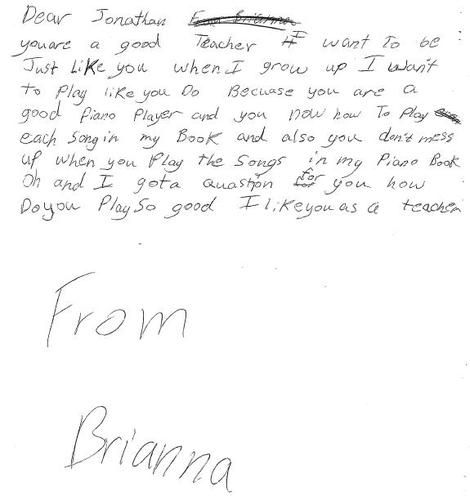 Dear Jonathan
you are a good Teacher I want To be
Just Like you when I grow up I want
to Play like you Do Becuase you are a
good Piano Player and you now how To Play
each Song in my Book and also you don't mess
up when you Play the Songs in my Piano Book
Oh and I gota quastion for you how
Do you Play So good I like you as a teacher
From
Brianna